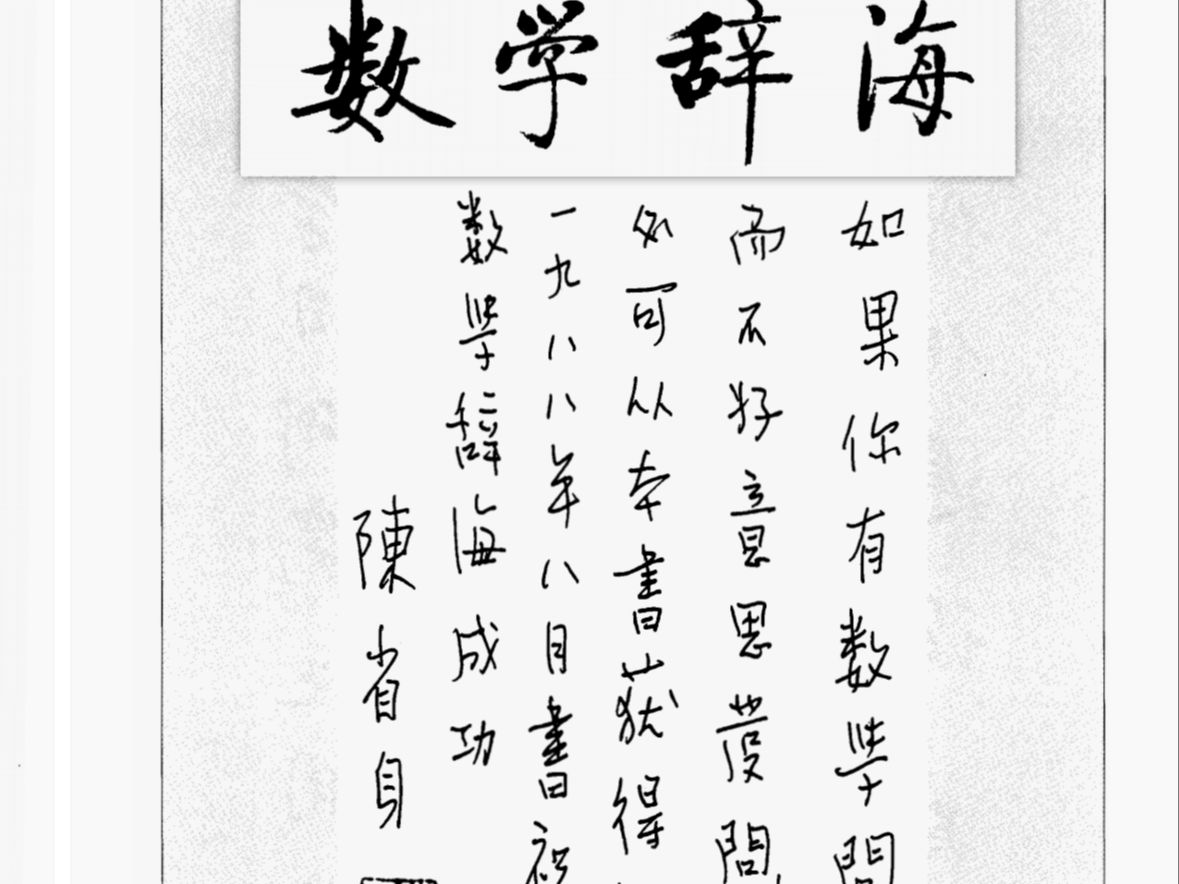 数学辞海
如果你有数学問
而不好意思發問
你可从本書获得
一九八八年八月書祝
数学辞海成功
陳省身